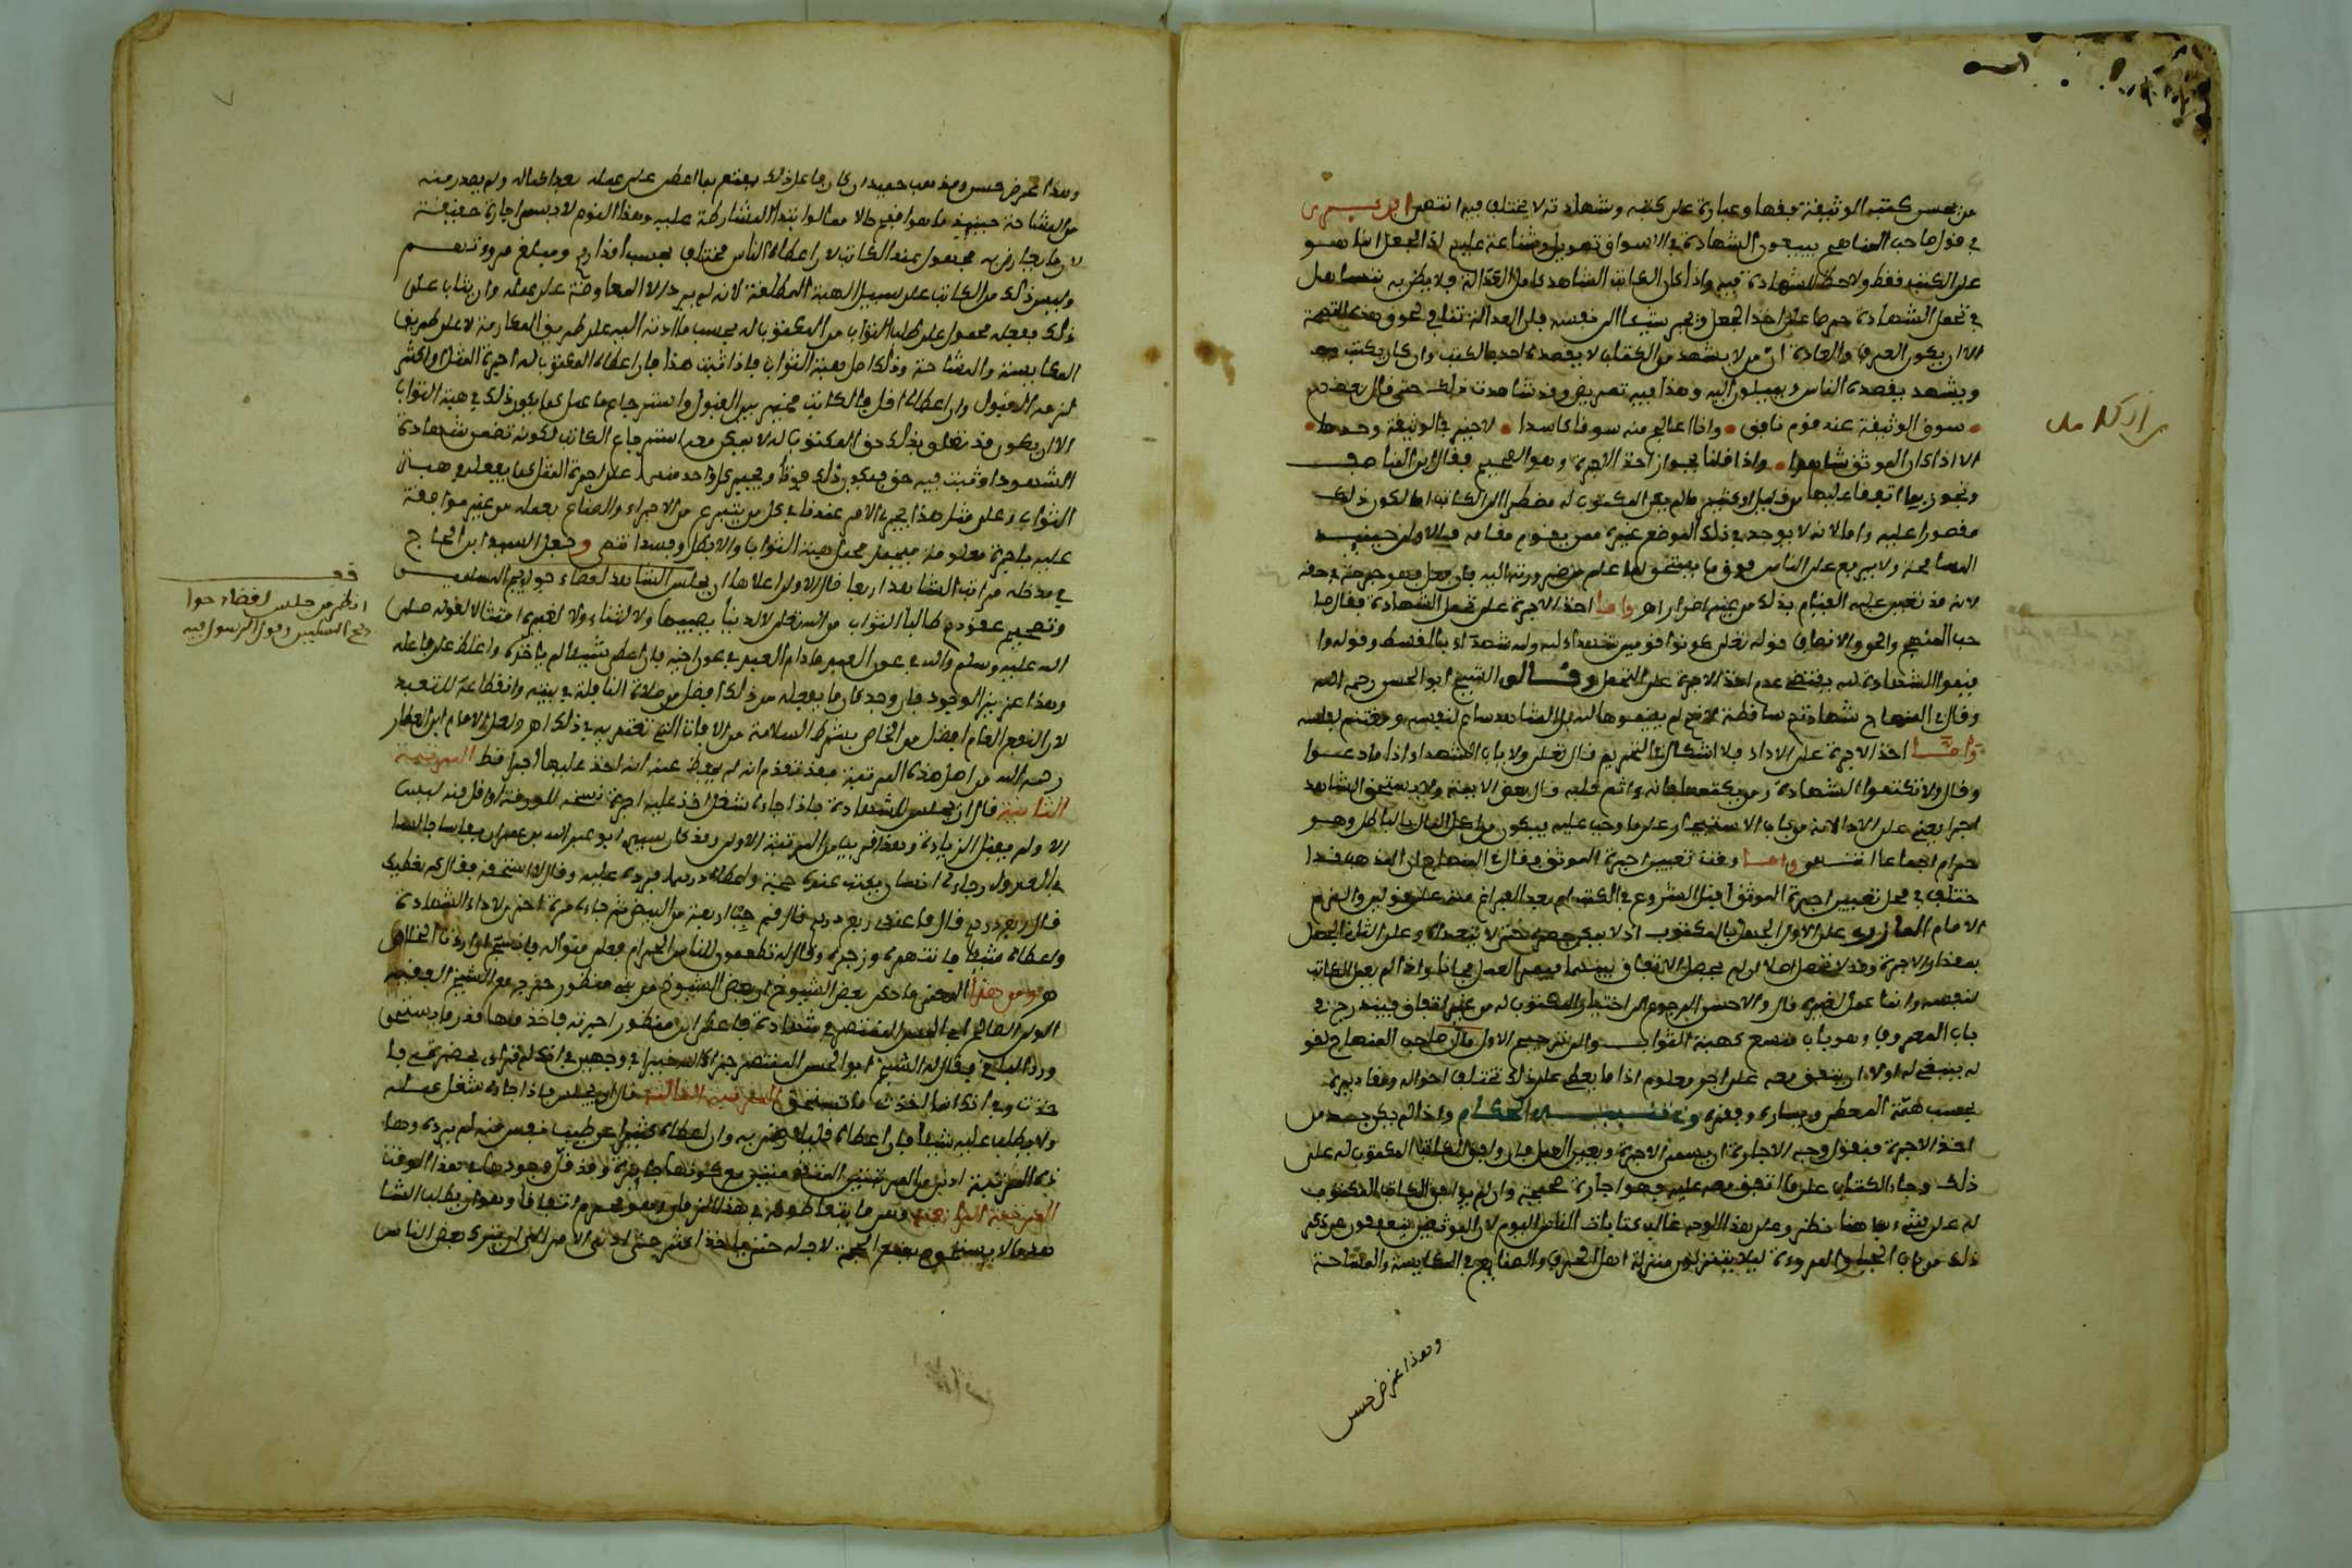 من يحسن كتب الوثيقة فقها وعبارة على كتبه وشهادته لا يختلف فيه انتهى
في قول صاحب المنهاج يبيعون الشهادة في الاسواق تهويل وشناعة عليهم اذ الجعل انما هو
على الكتب فقط ولاحظ للشهادة فيه واذا كان الكاتب الشاهد كامل العدالة فلا يظن به تساهل
في تحمل الشهادة حرصا على اخذ الجعل ونجر شيئا الى نفسه فان العدالة تنافي لحوق هذه التهمة
الا ان يكون العرف والعادة ان من لا يشهد من الكتاب لا يقصده احد بالكتب وان كان يكتب
ويشهد يقصده الناس ويميلون اليه وهذا فيه تعريض وقد شاهدت ذلك حتى قال بعضهم
سوق الوثيقة عند قوم نافق وانا اعالج منه سوقا كاسدا لا خير في الوثيقة وحدها
الا اذا كان الموثق شاهدا واذا قلنا بجواز اخذ الاجرة وهو الصحيح فقال ابن المناصف
وتجوز بما اتفقا عليه من قليل او كثير ما لم يكن المكتوب له مضطرا الى الكاتب اما لكون ذلك
مقصورا عليه واما لانه لا يوجد في ذلك الموضع غيره ممن يقوم مقامه فالاولى حينئذ
المسامحة ولا يرفع على الناس فوق ما يستحق لما علم من ضرورتهم اليه فان فعل فهو جرحة في حقه
لانه قد تعين عليه القيام بذلك من غير اضرار اهـ واما اخذ الاجرة على تحمل الشهادة فقال صا
حب المنهج والحق والانصاف قوله تعلى كونوا قوامين شهداء لله ولله شهداء بالقسط وقوله وا
قيموا الشهادة لله يقتضي عدم اخذ الاجرة على التحمل وقال الشيخ ابو الحسن رحمه الله
وقال في المنهاج شهادتهم ساقطة لانهم لم يقيموها لله بل الشاهد ساع لنفسه ومغتنم لفلسه
واما اخذ الاجرة على الاداء فلا اشكال في التحريم قال تعلى ولا ياب الشهداء اذا ما دعوا
وقال ولا تكتموا الشهادة ومن يكتمها فانه ءاثم قلبه قال بعض الايمة ولا يستحق الشاهد
اجرا يعني على الاداء لانه من باب الاستيجار على ما وجب عليه فيكون من اكل المال بالباطل وهو
حرام اجماعا انتهى واما وقت تعيين اجرة الموثق فقال في المنهاج ان المذهب قد ا
ختلف في محل تعيين اجرة الموثق قبل الشروع في الكتب ام بعد الفراغ منه على قولين والتزم
الامام المازري على الاول الجعل بالمكتوب
بمقدار الاجرة
لنفسه وانما عمل لغيره قال والاحسن الرجوع الى اختيار المكتوب له من غير اتفاق فيندرج في
باب المعروف وهو باب متسع كهبة الثواب والى ترجيح الاول مال صاحب المنهاج لقو
له ينبغي له اولا ان يتفق معه على اجر معلوم اذا ما يعطى على ذلك تختلف احواله ومقاديره
بحسب همة المعطي ويساره وفقره وفي تنبيه الحكام واذا لم يكن بد من
اخذ الاجرة فيقول وجه الاجارة ان يسمي الاجرة ويعين العمل فان وافق الكاتب المكتوب له على
ذلك وجاء الكتاب على ما اتفق معه عليه فهو اجارة صحيحة وان لم يوافق الكاتب المكتوب
له على شيء فها هنا نظر وعلى هذا الوجه غالب كتابات الناس اليوم لان الموثقين ينفقون من ذكر
ذلك من باب الحياء والمروءة ليلا يتنزلون منزلة اهل الحرف والصنايع في المكايسة والمشاحة
وهذا غرض حسن
وهذا غرض حسن ومذهب حميد ان كان فاعل ذلك يقنع بما اعطى على عمله بعد اكماله ولم يصدر منه
من المشاحة حينئذ ما هو اقبح حالا ومئالا من ابتداء المشارطة عليه وهذا النوع لا يسمى اجارة حقيقة
لان ما يجازى به مجهول عند الكاتب لان اعطاء الناس مختلف بحسب اقدارهم ومبلغ مروءتهم
وليس ذلك من الكاتب على سبيل الهبة المطلقة لانه لم يرد الا المعاوضة على عمله وان يثاب على
ذلك ففعله محمول على طلب الثواب من المكتوب له بحسب ما ادته اليه على طريق المكارمة لا على طريق
المكايسة والمشاحة وذلك اصل هبة الثواب فاذا ثبت هذا فان اعطاه المكتوب له اجرة المثل او اكثر
لزمه القبول وان اعطاه اقل فالكاتب مخير بين القبول واسترجاع ما عمل كما يكون ذلك في هبة الثواب
الا ان يكون قد تعلق بذلك حق المكتوب له لا يمكن معه استرجاع الكتاب لكونه تضمن شهادة
الشهود او ثبت فيه حق فيكون ذلك فوتا ويجبر كل واحد منهما على اجرة المثل كما يفعل في هبة
الثواب وعلى مثل هذا يجري الامر عندنا في كل من يتبرع من الاجراء والصناع بعمله من غير موافقة
عليه باجرة معلومة فيحمل محمل هبة الثواب والا بطل وفسد انتهى وجعل السيد ابن الحاج
في مدخله مراتب الشاهد اربعا قال الاولى اعلاها ان يجلس الشاهد لقضاء حوايج المسلمين
وتصحيح عقودهم طالبا الثواب من الله تعلى لا لدنيا يصيبها ولا لثناء ولا لغيره امتثالا لقوله صلى
الله عليه وسلم والله في عون العبد ما دام العبد في عون اخيه فان اعطي شيئا لم ياخذه واغلظ على فاعله
وهذا عزيز الوجود فان وجد كان ما يفعله من ذلك افضل من صلاة النافلة في بيته وانقطاعه للتعبد
لان النفع العام افضل من الخاص بشرط السلامة من الافات التي تعتريه في ذلك اهـ ولعل الامام ابن العطار
رحمه الله من اهل هذه المرتبة فقد تقدم انه لم يحفظ عنه انه اخذ عليها اجرا قط المرتبة
الثانية قال ان يجلس للشهادة فاذا جاءه شغل اخذ عليه اجرة نسخه للورقة او اقل منه ليس
الا ولم يقبل الزيادة وهذا قريب من المرتبة الاولى وقد كان سيدي ابو عبد الله بن عمران بفاس جالسا
في العدول وجاءه انسان يكتب عنده حجة واعطاه درهما فرده عليه وقال لا استحقه فقال كم نعطيك
قال ربع درهم قال ما عندي ربع درهم قال فهم جيب اربعة من البيض ثم جاءه مرة اخرى لاداء الشهادة
واعطاه مثلها فانتهره وزجره وقال له تطعمون للناس الحرام
هو ومن هذا المعنى ما حكى بعض الشيوخ ان بعض الشيوخ من بني منظور خرج مع الشيخ الفقيه
الولي الصالح ابي الحسن المنتصر في شهادة فاعطي ابن منظور اجرته فاخذ منها قدر ما يستحق
ورد الباقي فقال له الشيخ ابو الحسن المنتصر جزاك الله خيرا في وجهين في انك لم تراي بحضرتي فا
خذت وفي انك انما اخذت ما تستحق المرتبة الثالثة قال ان يجلس فاذا جاءه شغل عمله
ولا يطلب عليه شيئا فان اعطاه قليلا رضي به وان اعطاه كثيرا عن طيب نفس منه لم يرده وها
ذه المرتبة ادنى من المرتبتين المتقدمتين مع كونها جايزة وقد قل وجودها في هذا الوقت
المرتبة الرابعة وهي ما يتعاطونه في هذا الزمان وهو محرم اتفاقا وهو ان يطلب الشا
هد ما لا يستحق
قف
انظر من جلس لقضاء حوا
يج المسلمين وقول الرسول فيه